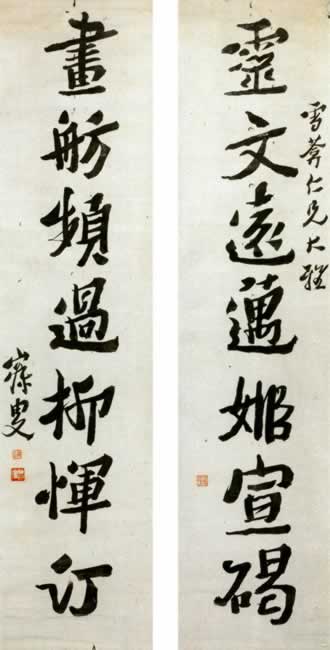 雪葊仁兄大雅
靈文遠邁姬宣碣
畫舫頻過柳惲汀
寐叟